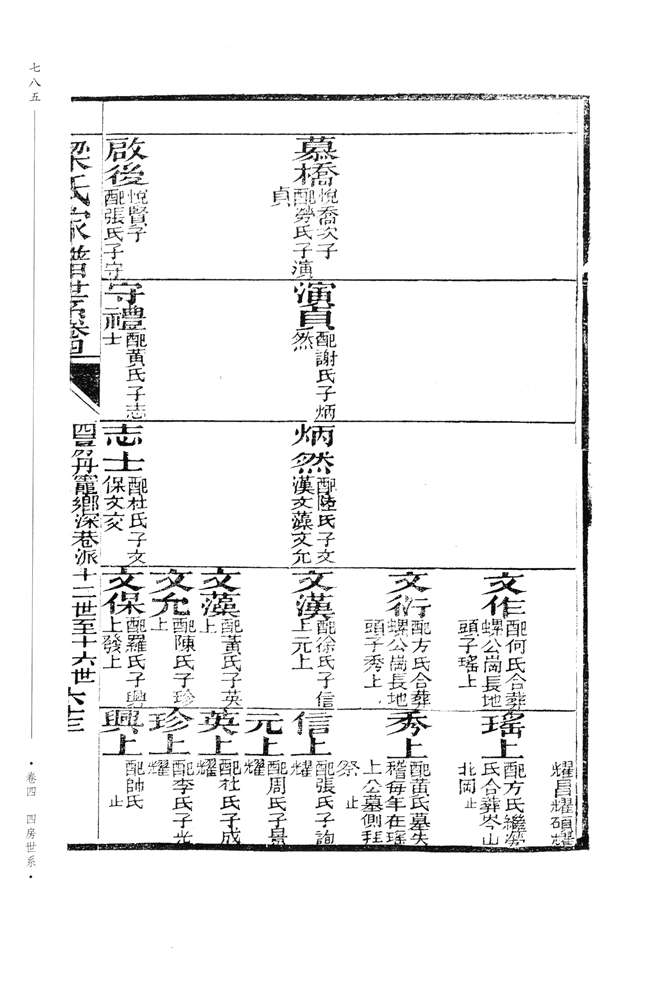 七八五
慕橋
悅喬次子
配勞氏子演
貞
啟後
悅賢子
配張氏子守
演貞
配謝氏子炳
然
守禮
配黃氏子志
士
炳然
配陸氏子文
漢文藻文允
志士
配杜氏子文
保文交
文作
配何氏合葬
螺公崗長地
頭子瑤上
文衍
配方氏合葬
螺公崗長地
頭子秀上
文漢
配徐氏子信
上元上
文藻
配黃氏子英
上
文允
配陳氏子珍
上
文保
配羅氏子興
上發上
耀昌耀碩耀
瑤上
配方氏繼勞
氏合葬岑山
北岡止
秀上
配黃氏墓失
稽每年在瑤
上公墓側拜
祭止
信上
配張氏子詢
耀
元上
配周氏子景
耀
英上
配杜氏子成
耀
珍上
配李氏子光
耀
興上
配帥氏
止
梁氏家譜世系卷四
四房丹竈鄉深巷派十二世至十六世
卷四 四房世系